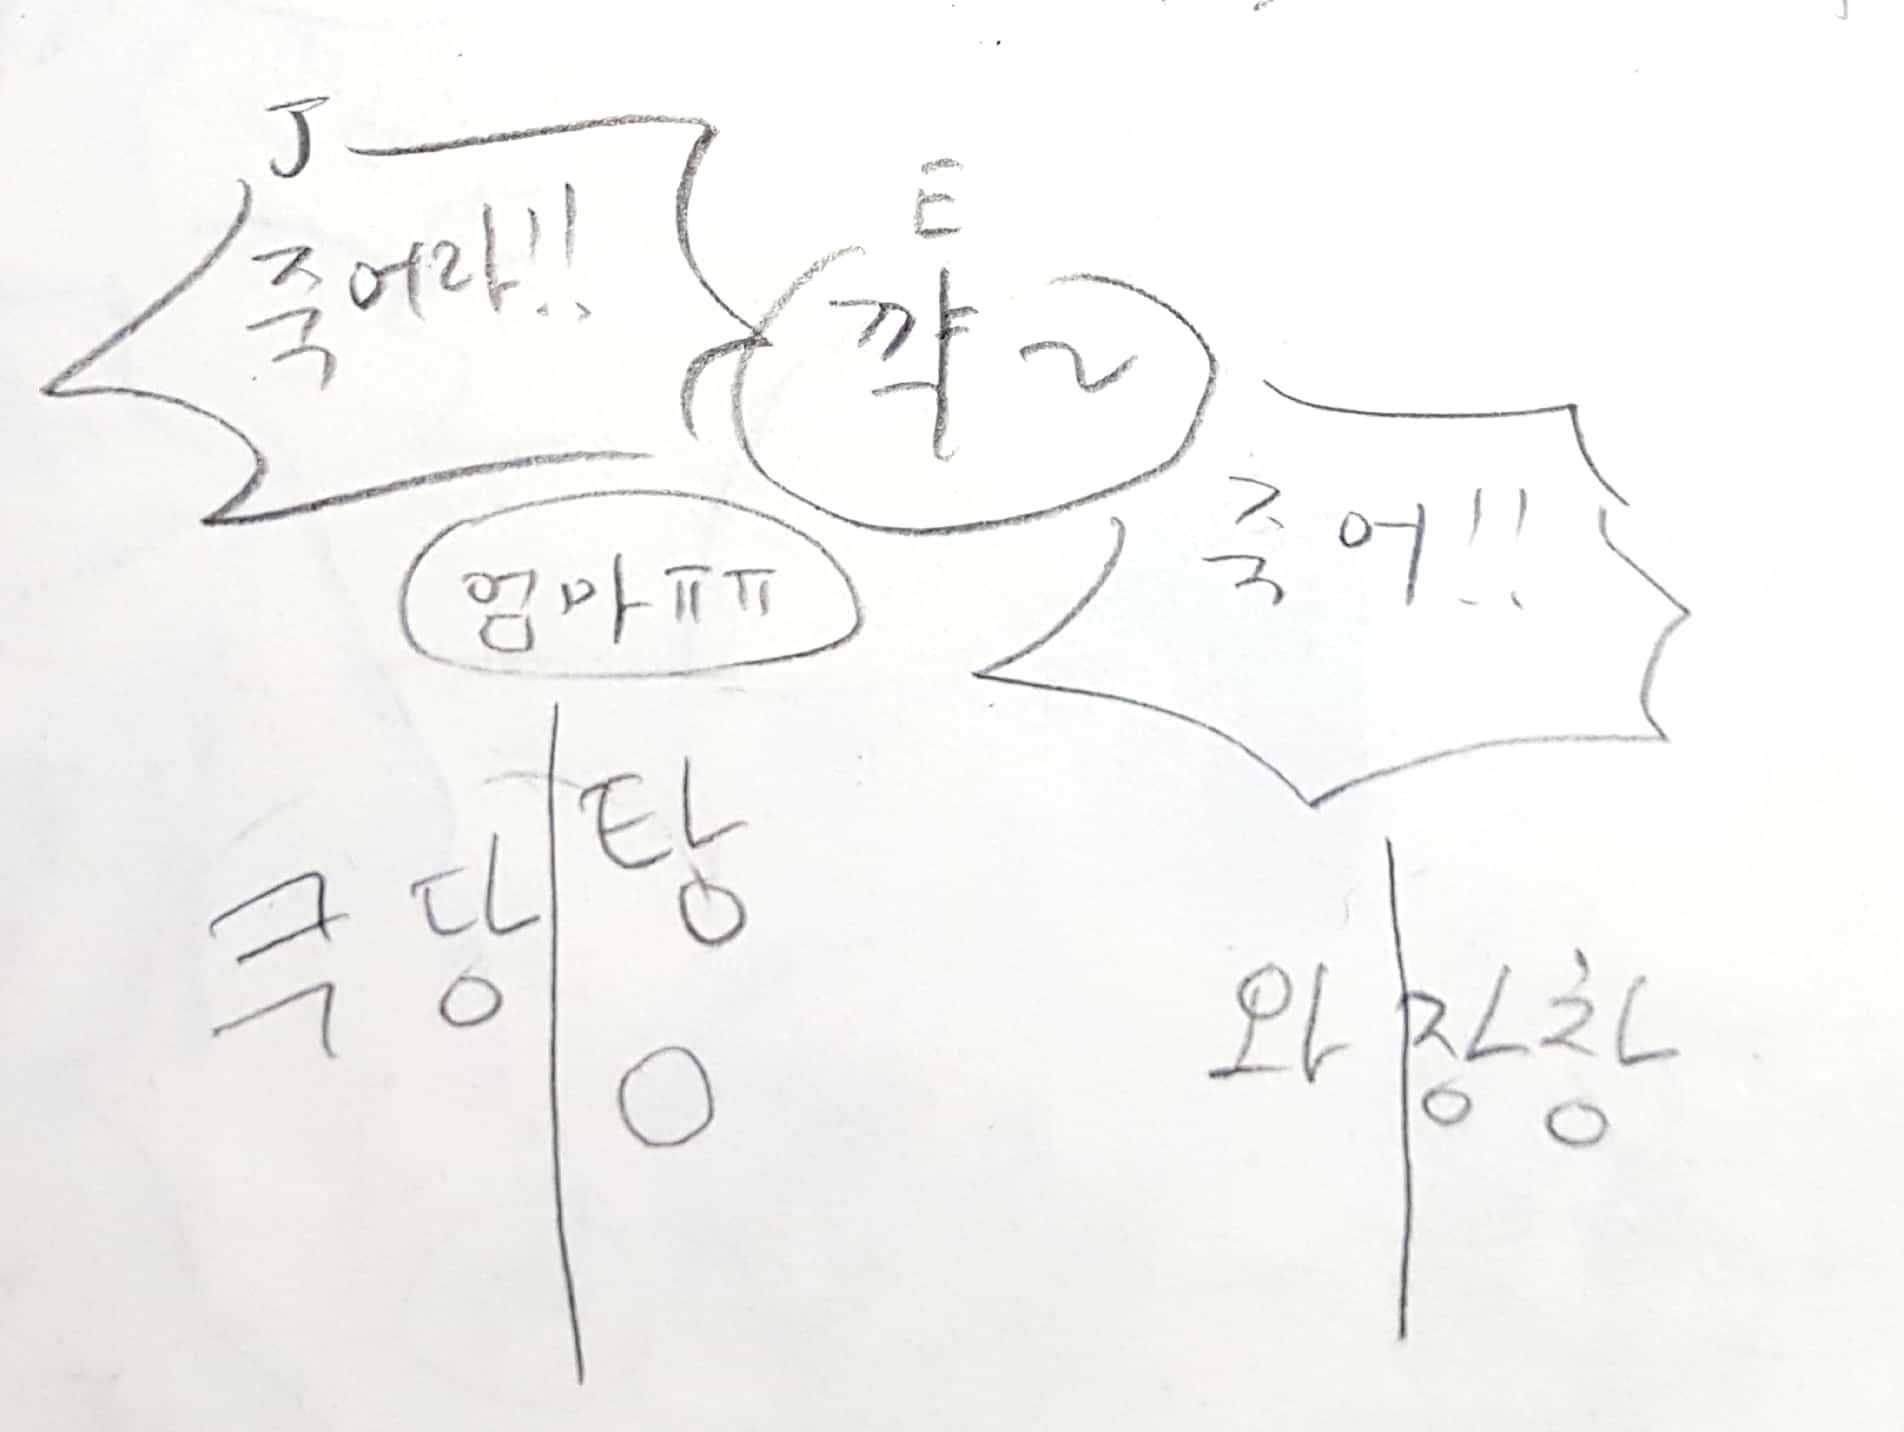 J
E
죽어라!!
꺅~
죽어!!
엄마ㅠㅠ
쿵당
탕
와장창